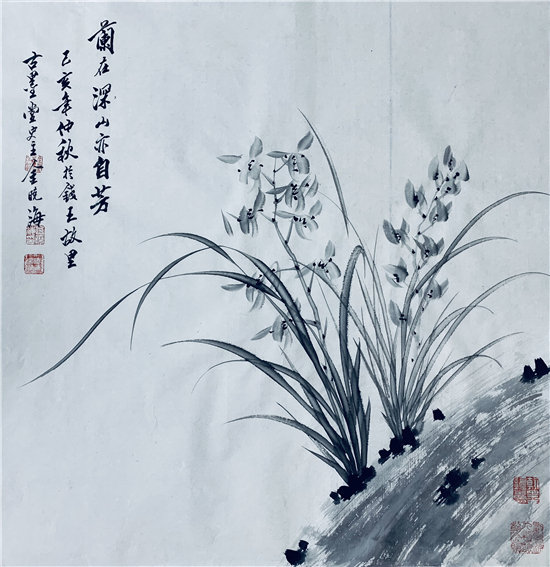 蘭在深山亦自芳
己亥年仲秋於錢王故里
古墨堂史主人金曉海